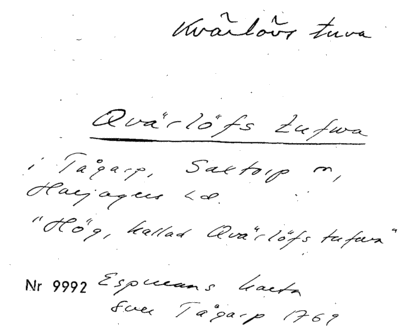 Kvärlövs tuva
Qvärlöfs tufwa
i Tågarp, Saxtorp sn,
Harjagers hd.
"Hög, kallad Qvärlöfs tufwa"
Nr 9992 Espmans karta
över Tågarp 1769